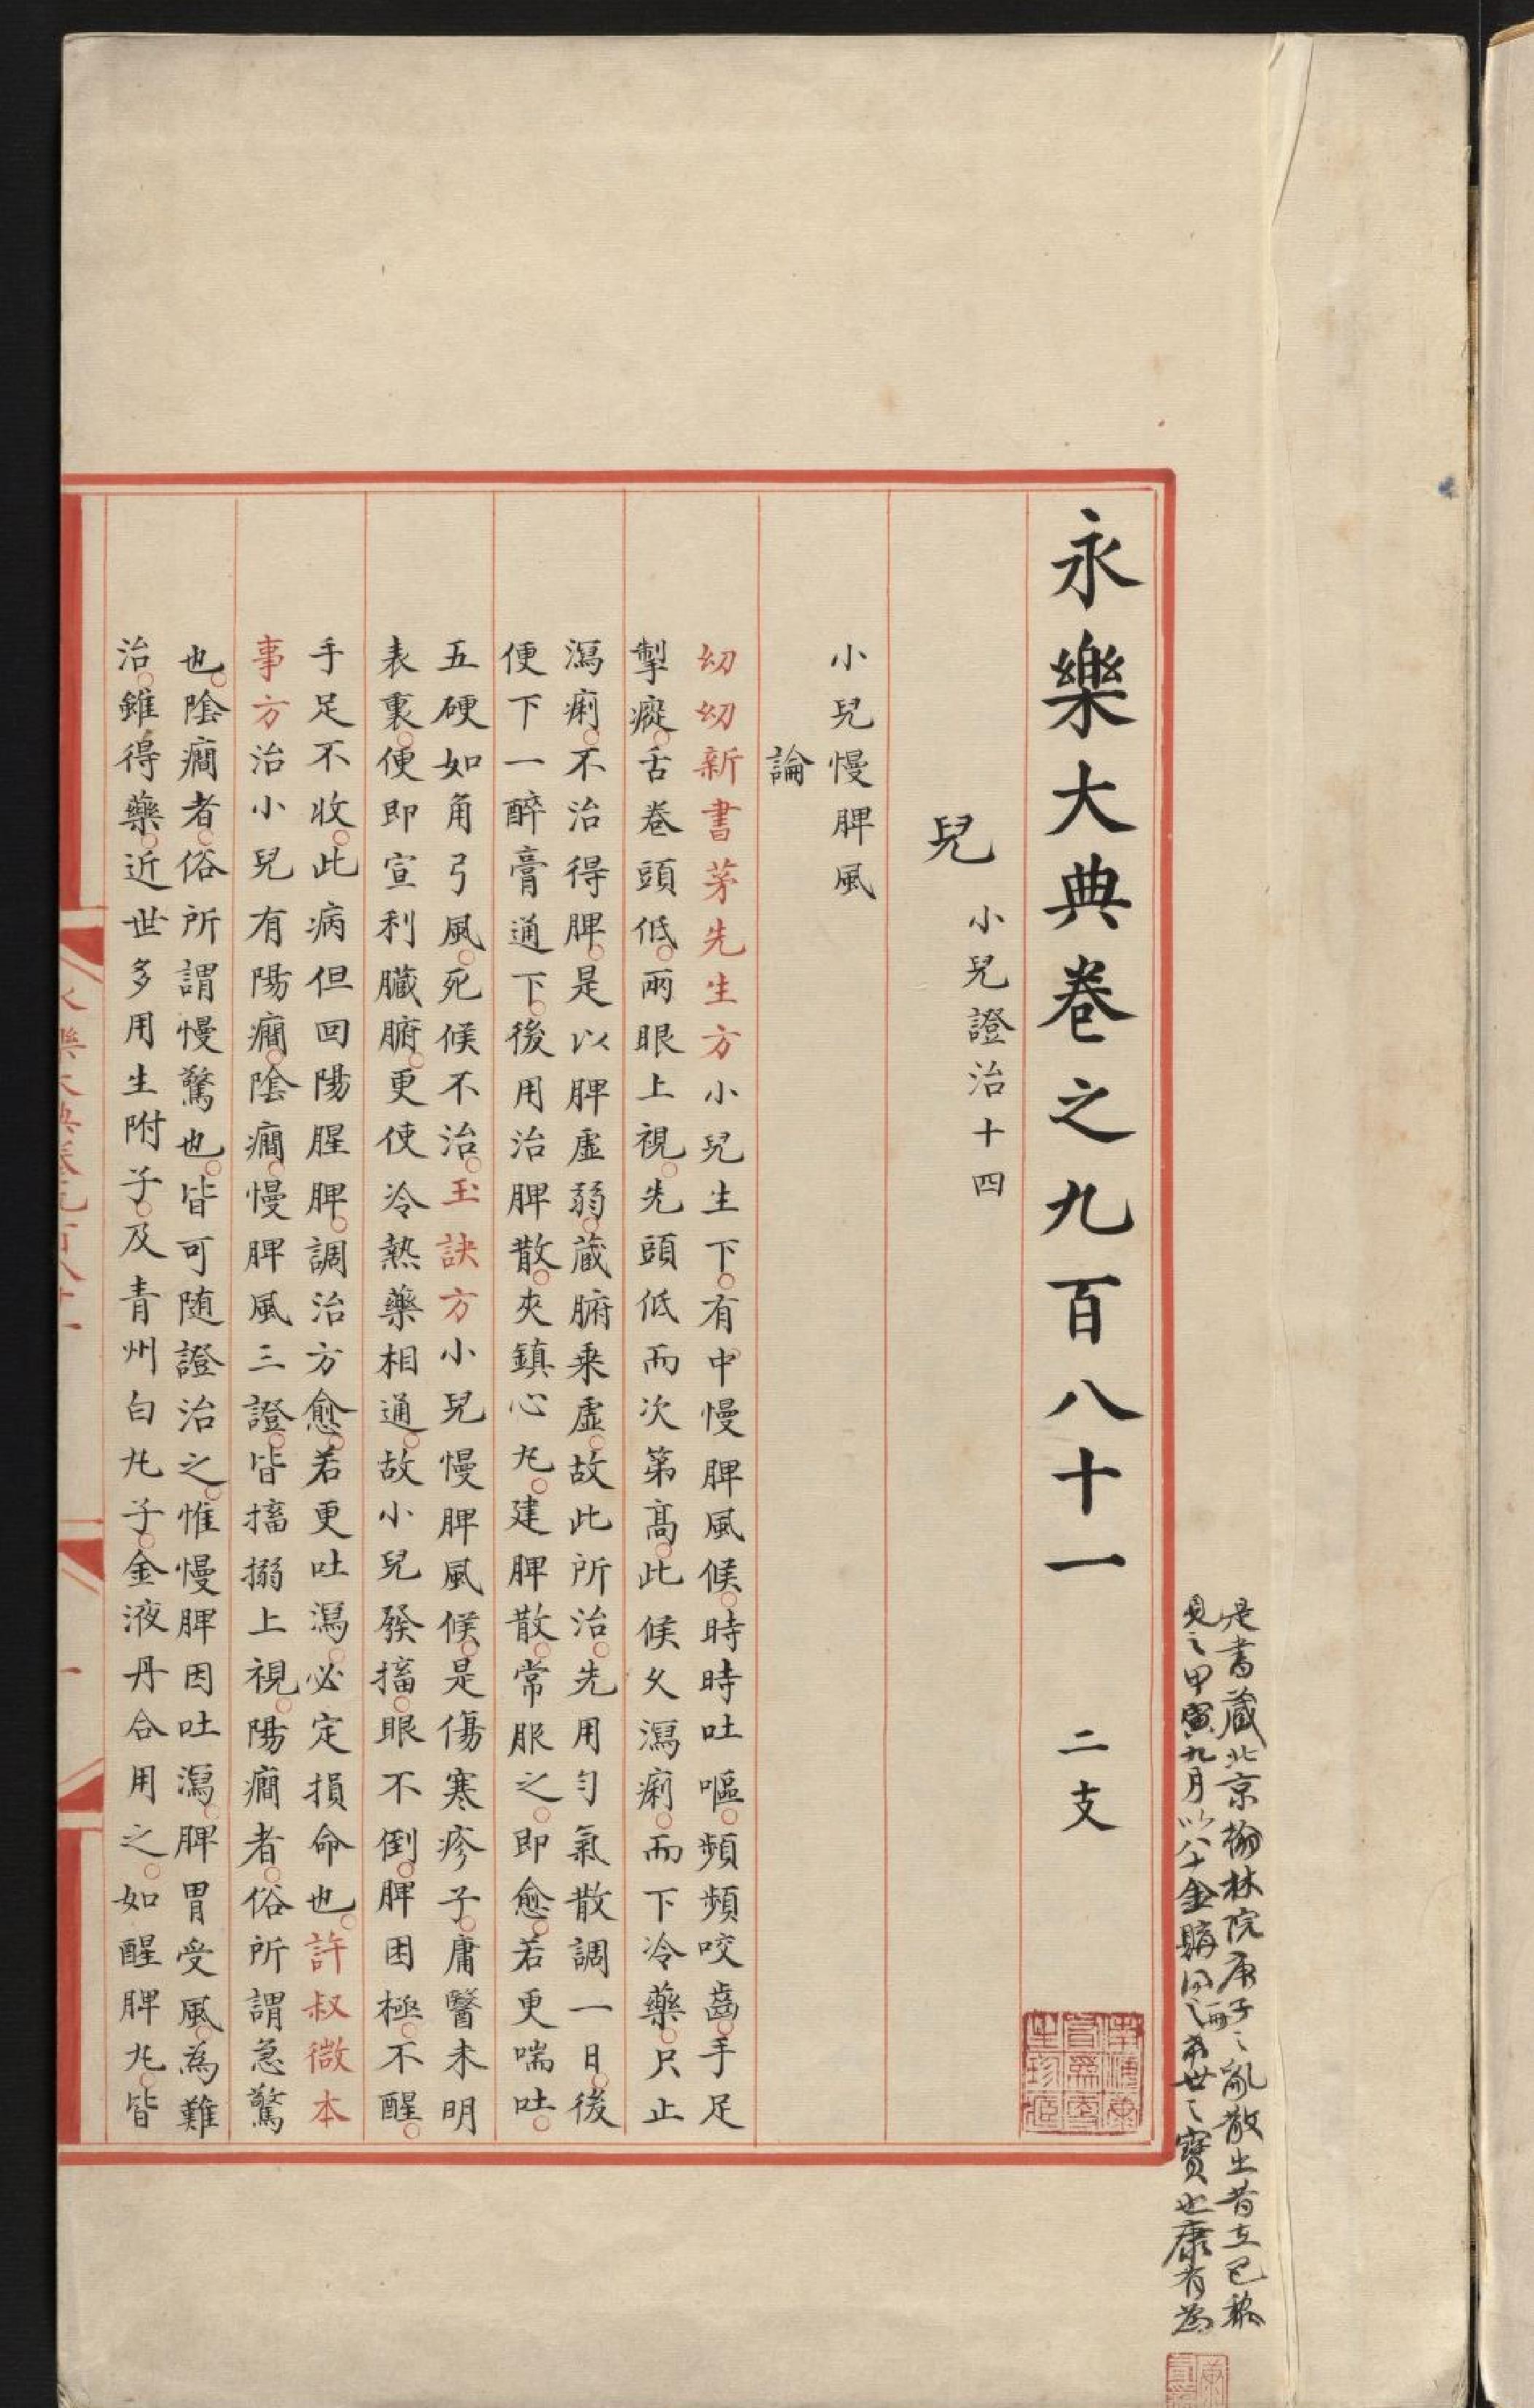 永樂大典卷之九百八十一 二支
兒 小兒證治十四
小兒慢脾風
論
幼幼新書茅先生方小兒生下有中慢脾風候時時吐嘔頻頻咬齒手足
掣瘲舌卷頭低兩眼上視先頭低而次第高此候久瀉痢而下冷藥只止
瀉痢不治得脾是以脾虛弱藏腑乘虛故此所治先用勻氣散調一日後
便下一醉膏通下後用治脾散夾鎮心圥建脾散常服之即愈若更喘吐
五硬如角弓風死候不治玉訣方小兒慢脾風候是傷寒疹子庸醫未明
表裏便即宣利臟腑更使冷熱藥相通故小兒發搐眼不倒脾困極不醒
手足不收此病但回陽腥脾調治方愈若更吐瀉必定損命也許叔微本
事方治小兒有陽癎陰癎慢脾風三證皆搐搦上視陽癎者俗所謂急驚
也陰癎者俗所謂慢驚也皆可随證治之惟慢脾因吐瀉脾胃受風為難
治雖得藥近世多用生附子及青州白圥子金液丹合用之如醒脾圥皆
是書藏北京翰林院庚子之亂散出昔在已稀
見之甲寅九月以八十金購得二冊希世之寶也康有為